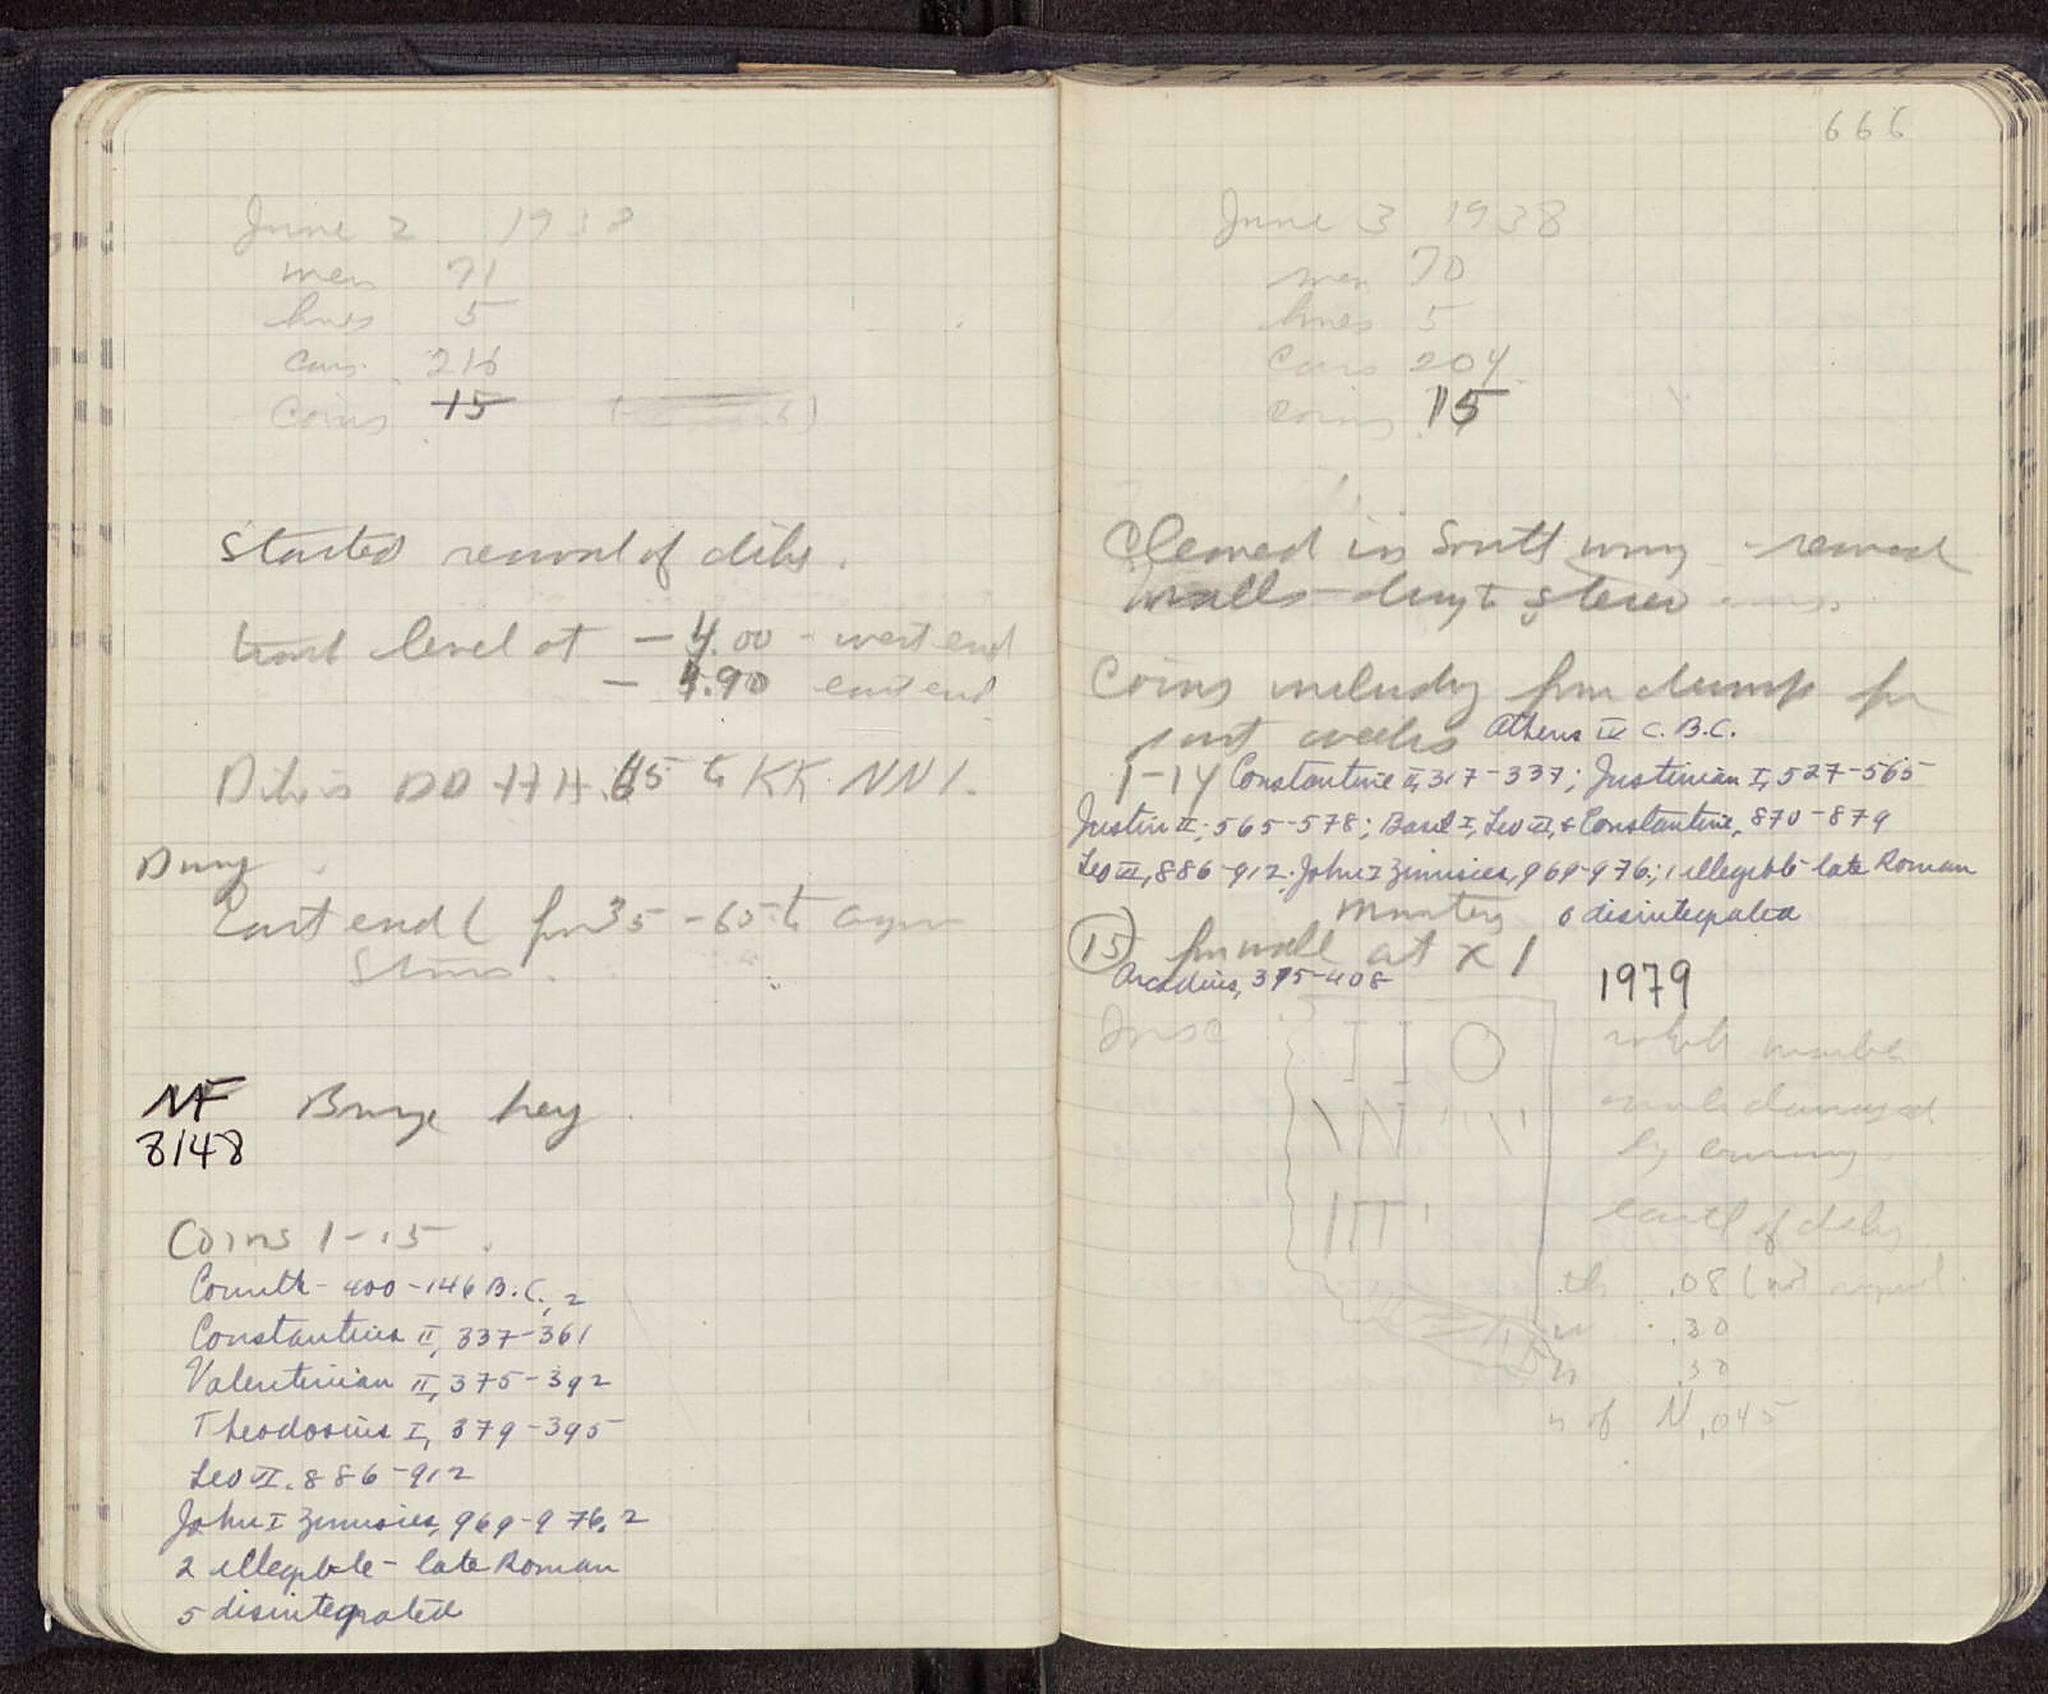 June 2 1938
men 71
hrs 5
cars 216
Coins 15
Started removal of debris.
level at - 4.00 - west end
- 4.90 east end
Debris DD HH 65 to KK NN 1.
Dug
East end for 35 - 65 to
Stones.
MF Bronze key.
8148
Coins 1-15.
Corinth - 400-146 B.C., 2
Constantius II, 337-361
Valentinian II, 375-392
Theodosius I, 379-395
Leo VI. 886-912
John I Zimisces, 969-976. 2
2 illegible - late Roman
5 disintegrated
666
June 3 1938
men 70
hrs 5
Cars 204
Coins 15
Cleaned in South - removed
walls
Coins including from dump for
past weeks Athens IV C. B.C.
1-14 Constantine II, 317-337; Justinian I, 527-565
Justin II, 565-578; Basil I, Leo VI, & Constantine, 870-879
Leo VI, 886-912; John I Zimisces, 969-976; 1 illegible late Roman
6 disintegrated
(15) from wall at x 1
Arcadius, 395-408
1979
Insc
white marble
damaged
by burning
east of debris
th .08 (not
w .30
h .30
h of N .045